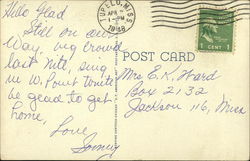 Hello Glad
Still on our
Way, big crowd
last nite, sing
in W. Point tonite
be glad to get
home,
Love
Sonny
TUPELO, MISS.
APR
1 - PM
1938
1 CENT 1
POST CARD
Mrs E. K. Ward
Box 2132
Jackson 116, Miss